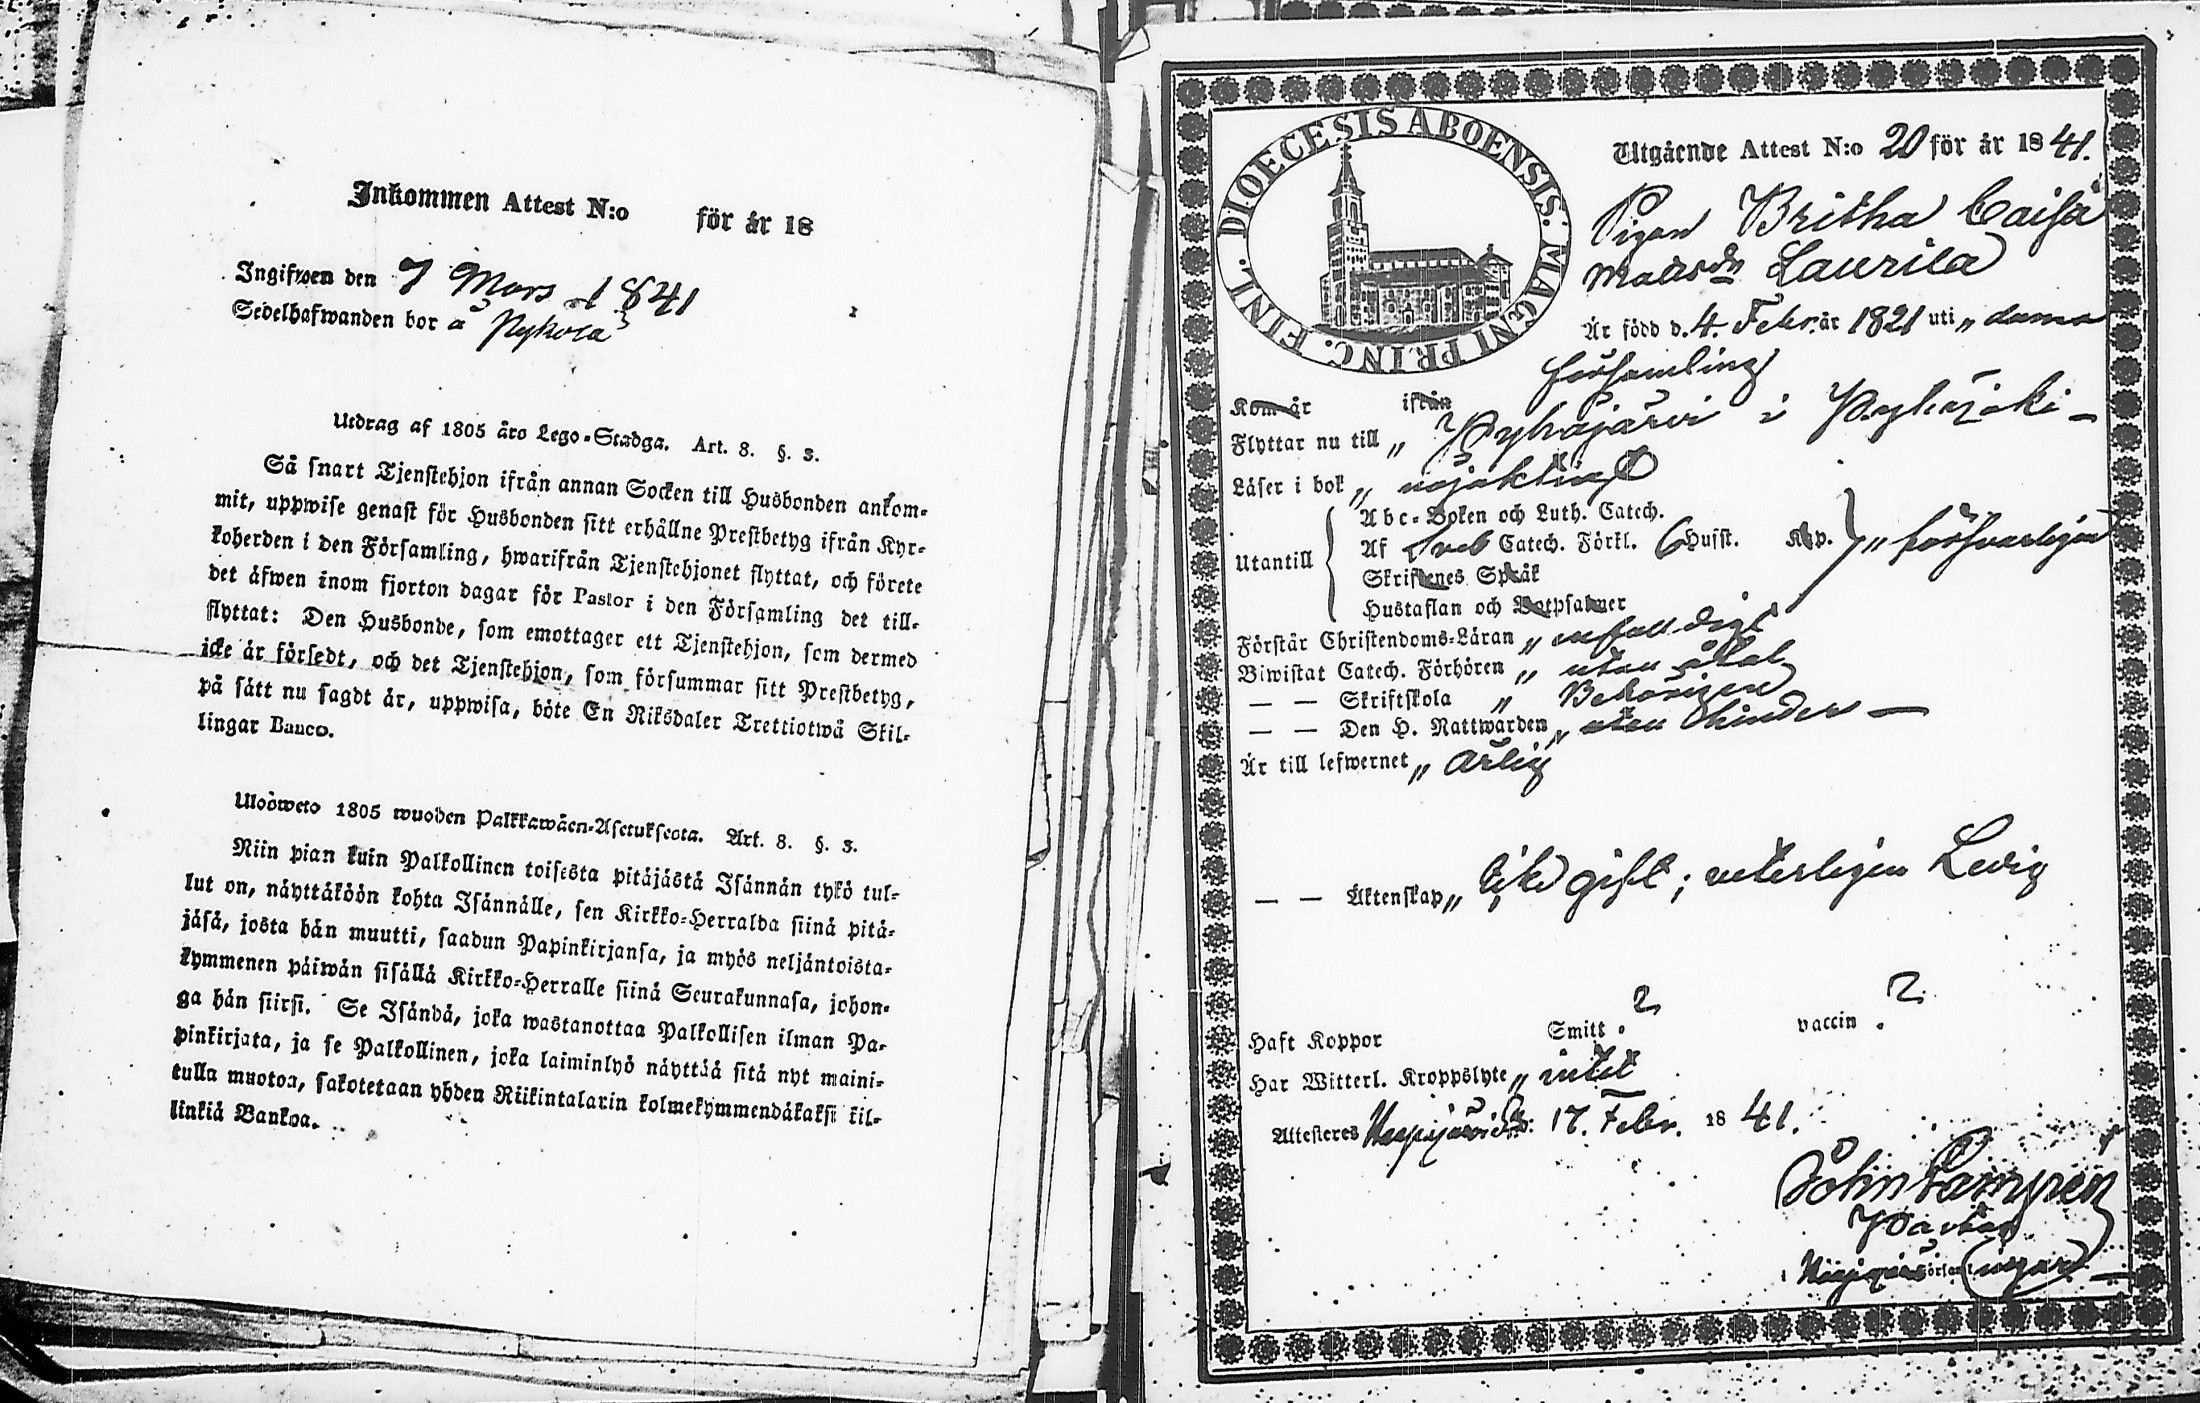 Inkommen Attest N:o för år 18
Ingifwen den 7 Mars 1841
Sedelhafwanden bor å Nykola
Utdrag af 1805 års Lego-Stadga. Art. 8. §. 3.
Så snart Tjenstehjon ifrån annan Socken till Husbonden ankom-
mit, uppwise genast för Husbonden sitt erhållne Prestbetyg ifrån Kyr-
koherden i den Församling, hwarifrån Tjenstehjonet flyttat, och förete
det äfwen inom fjorton dagar för Pastor i den Församling det till-
flyttat: Den Husbonde, som emottager ett Tjenstehjon, som dermed
icke är försedt, och det Tjenstehjon, som försummar sitt Prestbetyg,
på sätt nu sagdt är, uppwisa, böte En Riksdaler Trettiotwå Skil-
lingar Banco.
Ulosweto 1805 wuoden Palkkawäen-Asetuksesta. Art. 8. §. 3.
Niin pian kuin Palkollinen toisesta pitäjästä Isännän tykö tul-
lut on, näyttäköön kohta Isännälle, sen Kirkko-Herralda siinä pitä-
jäsä, josta hän muutti, saadun Papinkirjansa, ja myös neljäntoista-
kymmenen päiwän sisällä Kirkko-Herralle siinä Seurakunnasa, johon-
ga hän siirsi. Se Isändä, joka wastanottaa Palkollisen ilman Pa-
pinkirjata, ja se Palkollinen, joka laiminlyö näyttää sitä nyt maini-
tulla muotoa, sakotetaan yhden Riikintalarin kolmekymmendäkaksi kil-
linkiä Bankoa.
DIOECESIS ABOENSIS. MAGNI PRINC. FINL.
Utgående Attest N:o 20 för år 1841.
Pigan Britha Caisa
Matsdr Laurila
Är född d. 4. Febr. år 1821 uti „ denna
församling
Kom år ifrån
Flyttar nu till „ Pyhäjärvi i Pyhäjoki –
Läser i bok „ nöjaktigt
Utantill
Abc-Boken och Luth. Catech.
Af Sveb Catech. Förkl. 6 Husst. Kap. „ försvarligen
Skriftenes Språk
Hustaflan och Botpsalmer
Förstår Christendoms-Läran „ enfaldigt
Biwistat Catech. Förhören „ utan åtal
— — Skriftskola „ Behörigen
— — Den H. Nattwarden „ utan hinder —
Är till lefwernet „ ärlig
— — Äktenskap „ icke gift; veterligen Ledig
Haft Koppor Smitt. ? vaccin. ?
Har Witterl. Kroppslyte „ intet
Attesteras d: 17. Febr. 1841.
Pastor
i församl